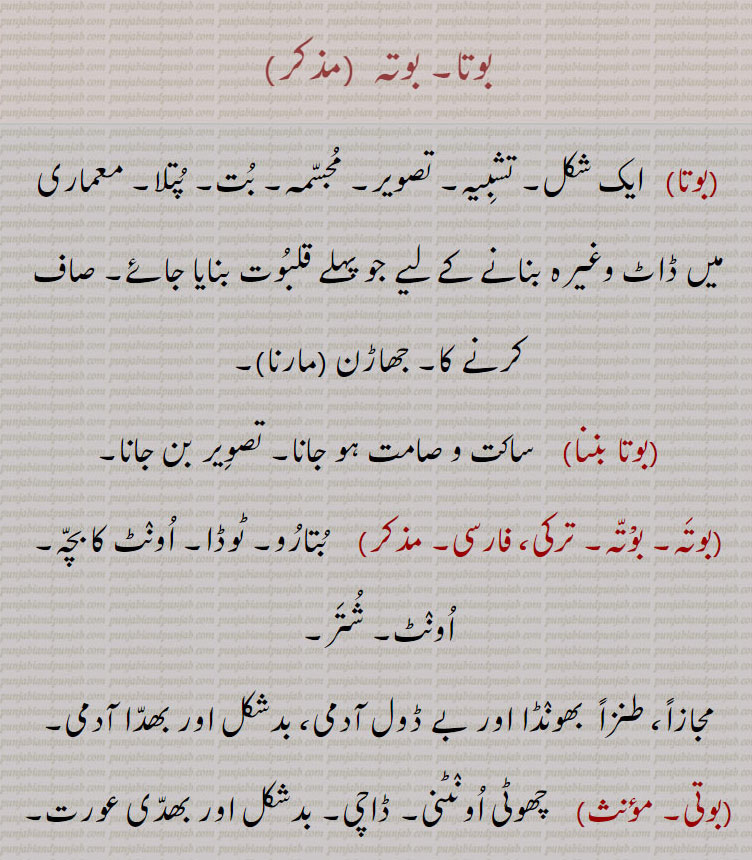 بوتا۔ بوتہ (مذکر)
(بوتا) ایک شکل۔ تشبِیہ۔ تصویر۔ مُجسّمہ۔ بُت۔ پُتلا۔ معماری
میں ڈاٹ وغیرہ بنانے کے لیے جو پہلے قلبُوت بنایا جائے۔ صاف
کرنے کا۔ جھاڑن (مارنا)۔
(بوتا بننا) ساکت و صامت ہو جانا۔ تصوِیر بن جانا۔
(بوتَہ۔ بوْتّہ۔ ترکی، فارسی۔ مذکر) بُتارُو۔ ٹوڈا۔ اُونٹ کا بچّہ۔
اُونٹ۔ شُتَر۔
مجازاً، طنزاً بھونْڈا اور بے ڈول آدمی، بدشکل اور بھدّا آدمی۔
(بوتی۔ مؤنث) چھوٹی اُونْٹنی۔ ڈاچی۔ بدشکل اور بھدّی عورت۔